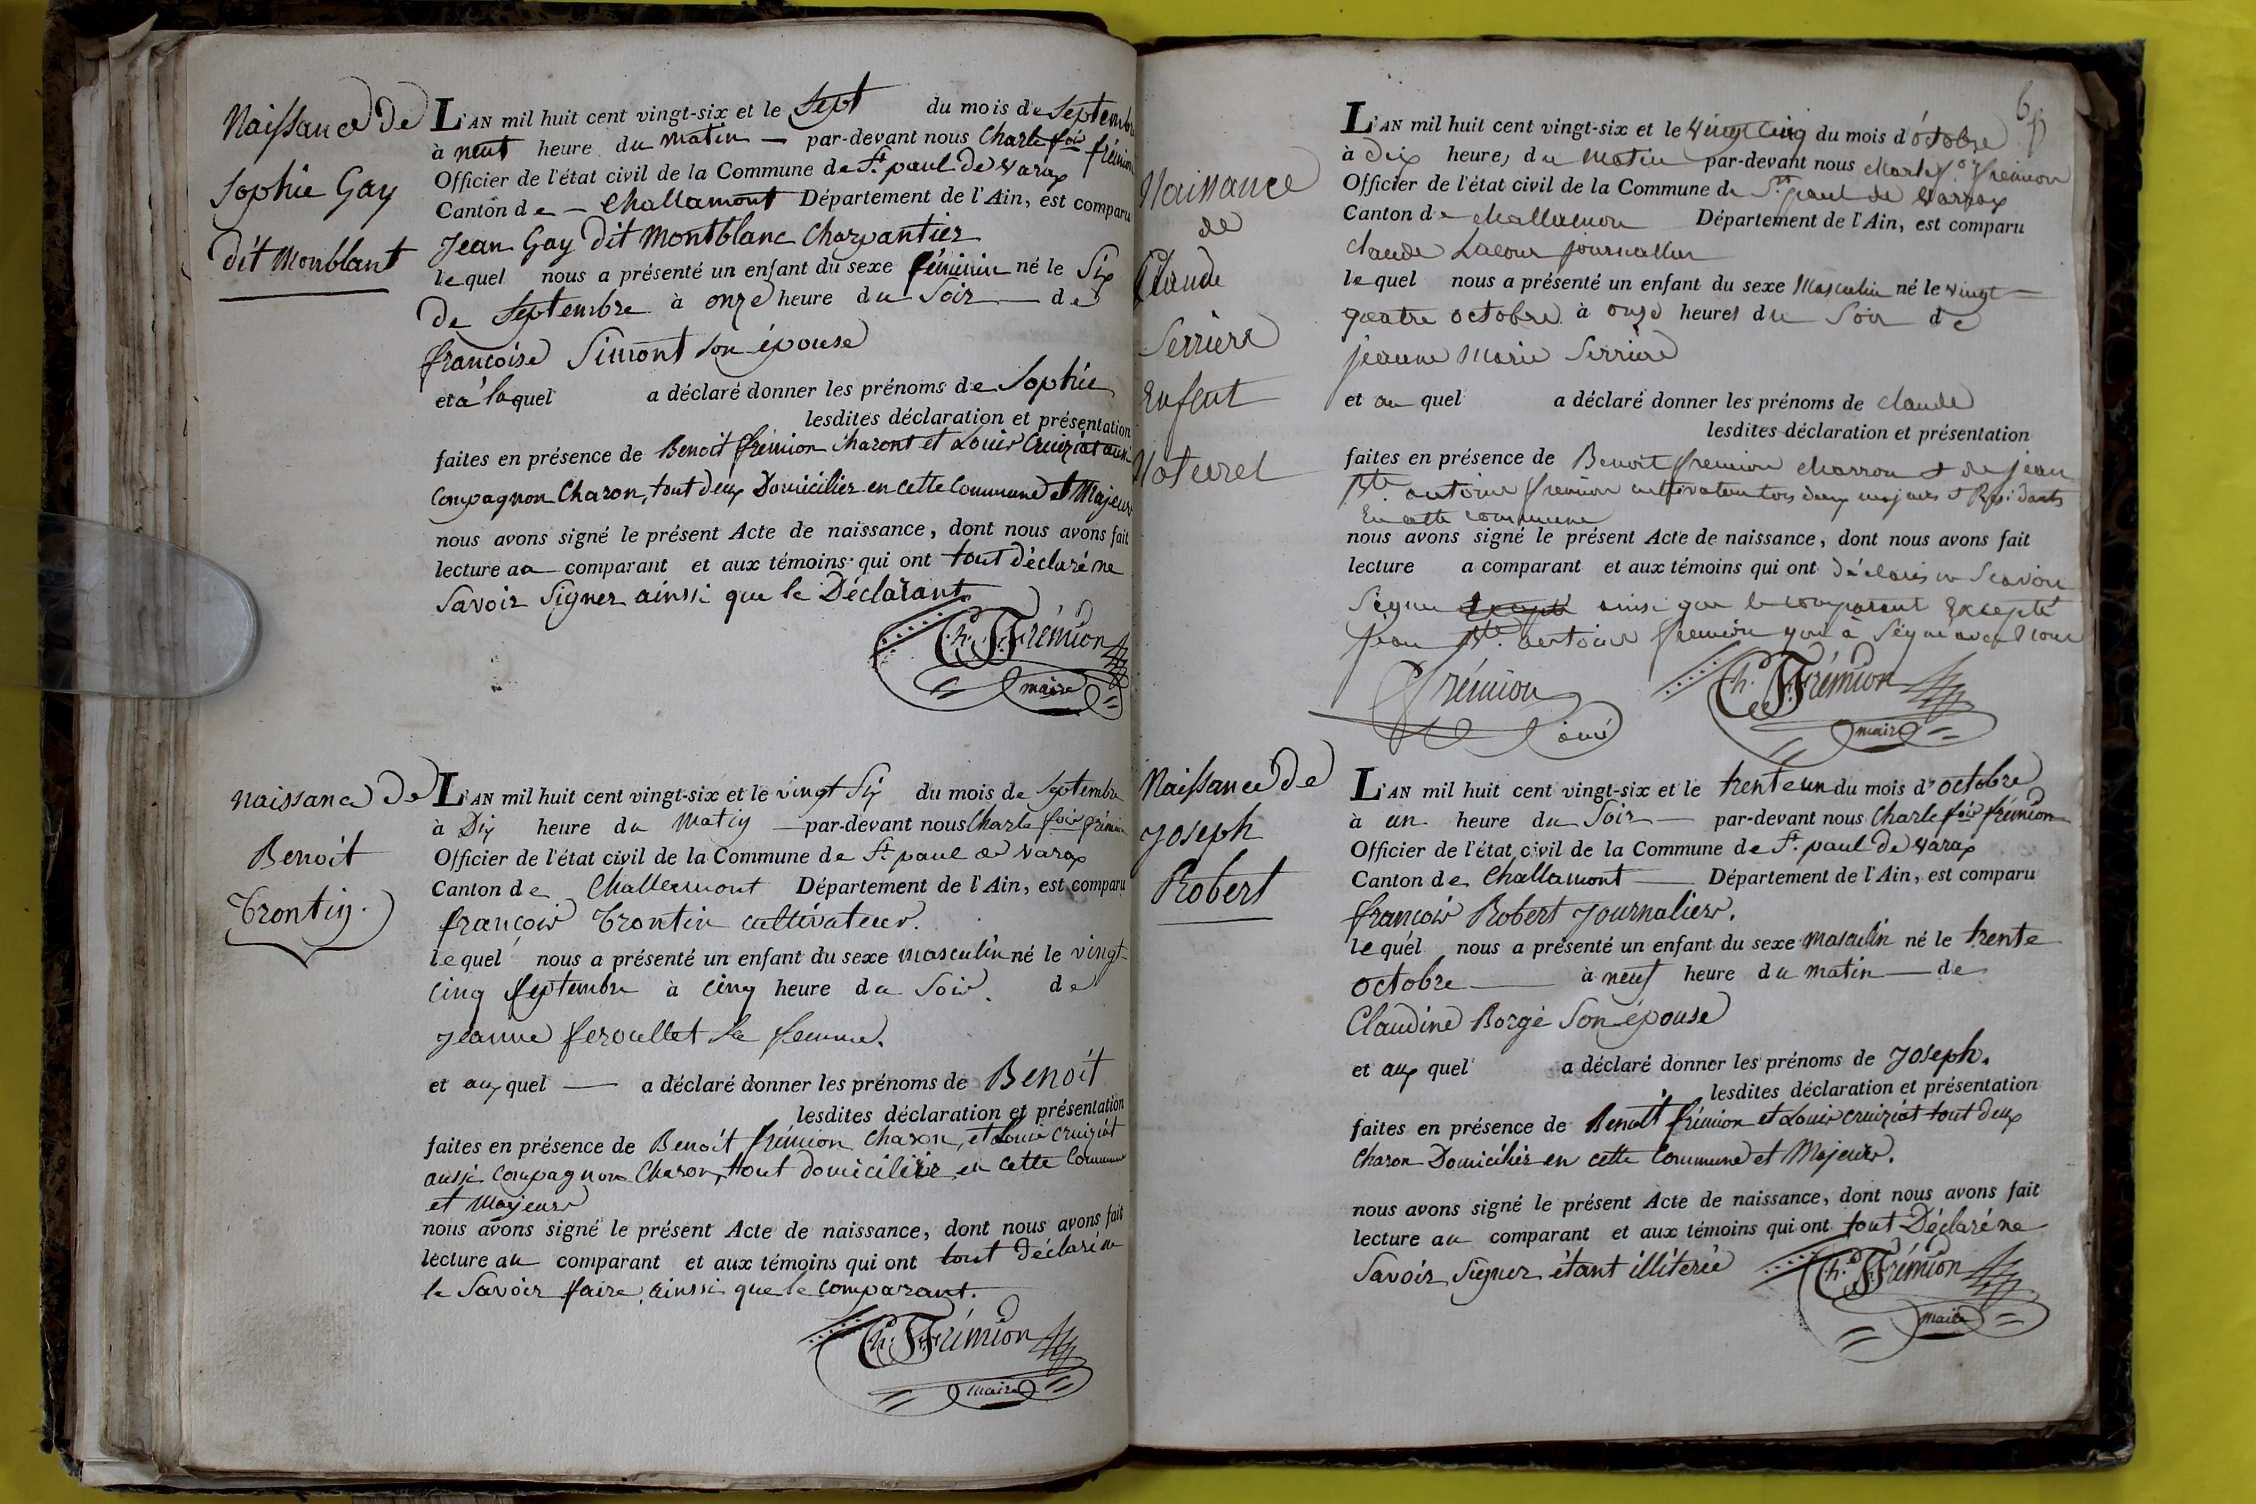 Naissance de
Sophie Gay
dit Monblant
L'AN mil huit cent vingt-six et le Sept du mois de Septembre
à neuf heure du matin — par-devant nous Charle fois frémion
Officier de l'état civil de la Commune de St. paul de varax
Canton de — Challamont Département de l'Ain, est comparu
Jean Gay dit Montblanc Charpantier
lequel nous a présenté un enfant du sexe féminin né le Six
de Septembre à onze heure du Soir — de
francoise Simont son épouse
et à laquel a déclaré donner les prénoms de Sophie
lesdites déclaration et présentation
faites en présence de Benoit frémion Charont et Louis Cruiziat aussi
Compagnon Charon, tout deux Domicilier en cette Commune et Majeur
nous avons signé le présent Acte de naissance, dont nous avons fait
lecture au comparant et aux témoins qui ont tout déclaré ne
Savoir Signer ainssi que le Déclarant
Ch. Frémion
maire
Naissance de
Benoit
Trontin.
L'AN mil huit cent vingt-six et le vingt Six du mois de Septembre
à Dix heure du Matin — par-devant nous Charle fois frémion
Officier de l'état civil de la Commune de St. paul de varax
Canton de Challamont Département de l'Ain, est comparu
francois Trontin cultivateur.
lequel nous a présenté un enfant du sexe masculin né le vingt
cinq Septembre à cinq heure du Soir. de
Jeanne feroullet Sa femme.
et aux quel — a déclaré donner les prénoms de Benoit
lesdites déclaration et présentation
faites en présence de Benoit frémion Charon, et Louis cruiziat
aussi compagnon Charon, tout domicilier en cette Commune
et Majeurs
nous avons signé le présent Acte de naissance, dont nous avons fait
lecture au comparant et aux témoins qui ont tout déclaré ne
le Savoir faire, ainssi que le comparant.
Ch. Frémion
maire
6
Naissance
de
Claude
Serriere
Enfent
Naturel
L'AN mil huit cent vingt-six et le vingt cinq du mois d'octobre
à dix heures du matin par-devant nous Charles fois fremion
Officier de l'état civil de la Commune de St paul de Varrax
Canton de challamon Département de l'Ain, est comparu
claude Lacour journallier
lequel nous a présenté un enfant du sexe Masculin né le vingt
quatre octobre à onze heures du Soir de
jeanne Marie Serriere
et au quel a déclaré donner les prénoms de claude
lesdites déclaration et présentation
faites en présence de Benoit fremion charron et de jean
Bte. antoine fremion cultivateur tous deux majeurs et Residants
En cette commune
nous avons signé le présent Acte de naissance, dont nous avons fait
lecture a comparant et aux témoins qui ont déclarés ne Scavoir
Signer Excepté ainsi que le comparant Excepté
jean Bte. antoine fremion qui à Signé avec Nous
frémion
ainé
Ch. Frémion
maire
Naissance de
Joseph
Robert
L'AN mil huit cent vingt-six et le trente un du mois d'octobre
à un heure du Soir — par-devant nous Charle fois frémion
Officier de l'état civil de la Commune de St. paul de varax
Canton de Challamont — Département de l'Ain, est comparu
francois Robert Journalier.
lequel nous a présenté un enfant du sexe masculin né le trente
octobre — à neuf heure du matin — de
Claudine Borge Son épouse
et aux quel a déclaré donner les prénoms de Joseph.
lesdites déclaration et présentation
faites en présence de Benoit frémion et Louis cruiziat tout deux
Charon Domicilier en cette Commune et Majeurs.
nous avons signé le présent Acte de naissance, dont nous avons fait
lecture au comparant et aux témoins qui ont tout Déclaré ne
Savoir Signer étant illiterié
Ch. Frémion
maire